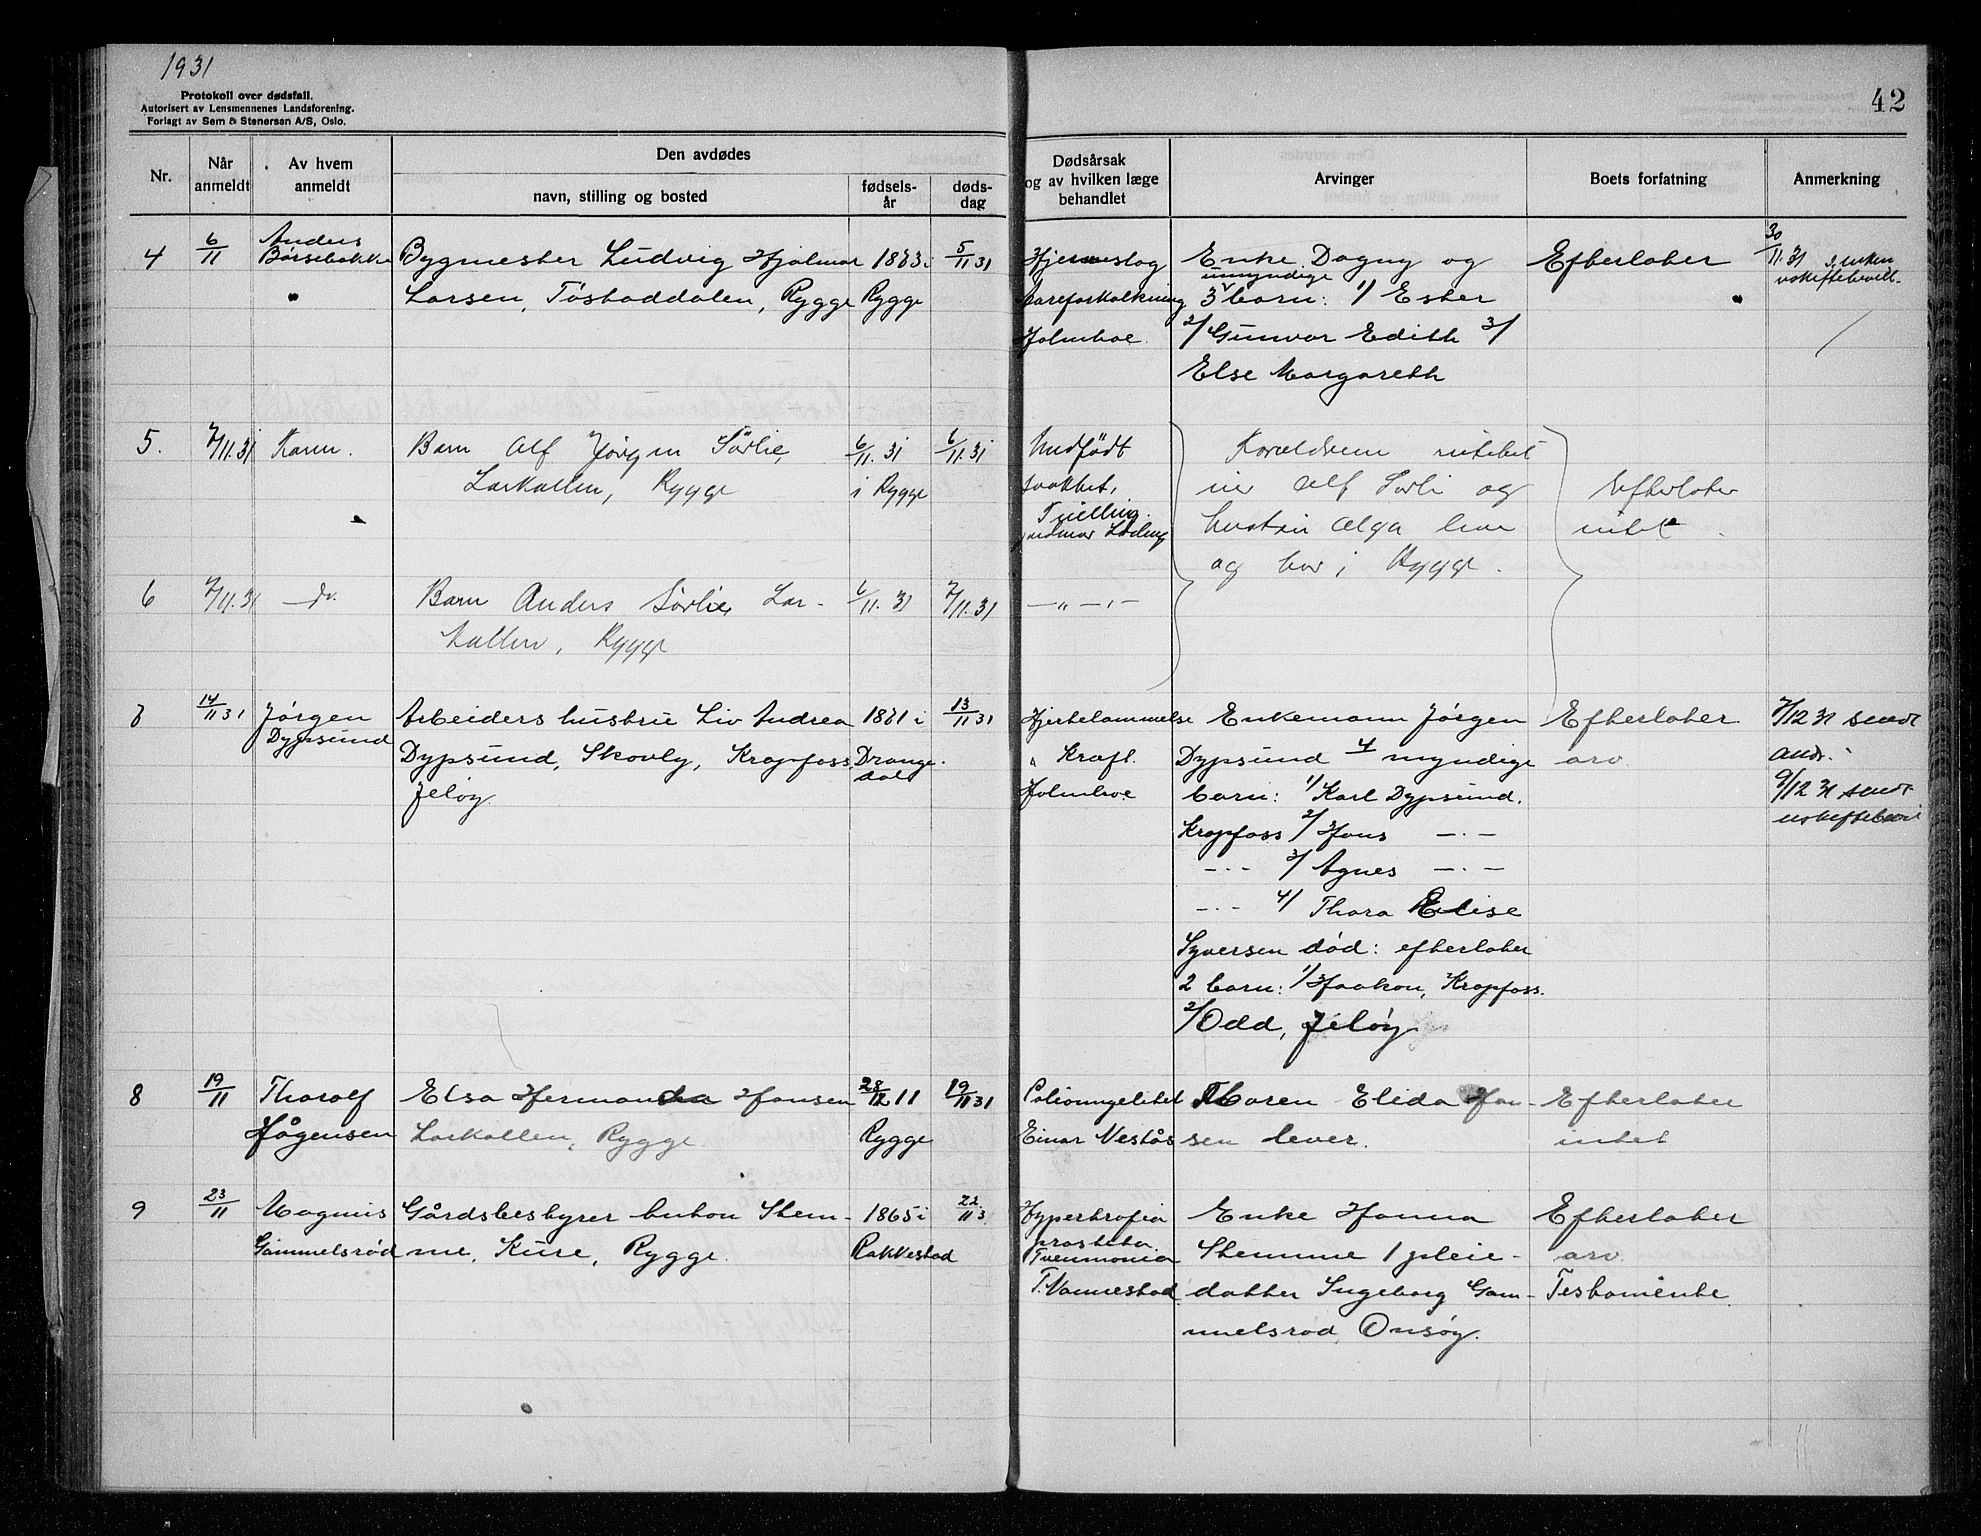 1931
Protokoll over dødsfall.
Autorisert av Lensmennenes Landsforening.
Forlagt av Sem & Stenersen A/S, Oslo.
42
Nr.
Når anmeldt
Av hvem anmeldt
Den avdødes
navn, stilling og bosted
fødsels-år
døds-dag
Dødsårsak og av hvilken læge behandlet
Arvinger
Boets forfatning
Anmerkning
4
6/11
Anders
Børsebakke
Bygmester Ludvig Hjalmar
Larsen, Tøsbaddalen, Rygge
1883 i
Rygge
5/11 31
Hjerneslag
Aareforkalkning
Holmboe.
Enke Dagny og
umyndige
3 barn: 1/ Ester
2/ Gunvor Edith 3/
Else Margareth
Efterlater
30/11.31 s. enken
uskiftebevill-
5.
7/11.31
Karen.
Barn Alf Jörgen Sörlie,
Larkollen, Rygge
6/11.31
i Rygge
6/11.31
Tvilling.
Forældrene
Alf Sörli og
hustru Olga
og bor i Rygge.
Efterlater
intet.
6
7/11.31
— do.
Barn Anders Sörlie, Lar-
kollen, Rygge
6/11.31
7/11.31
— „ — „ —
7
14/11 31
Jørgen
Dypsund
Arbeiders hustru Liv Andrea
Dypsund, Skovly, Krapfoss,
Jeløy.
1861 i
Drange-
dal
13/11 31
Hjertelammelse
Kraft.
Holmboe
Enkemann Jørgen
Dypsund 4 myndige
barn: 1/ Karl Dypsund,
Krapfoss 2/ Hans — . —
— . — 3/ Agnes — . —
— . — 4/ Thora Elise
Syversen død: efterlater
2 barn: 1/ Haakon, Krapfoss.
2/ Odd, Jeløy.
Efterlater
arv.
7/12 31 sendt
9/12 31 sendt
uskiftebevill
8
19/11
Thoralf
Hågensen
Elsa Hermanda Hansen
Larkollen, Rygge.
28/12 11
Rygge
19/11 31
Poliomyelitet
Einar Nestås
Moren Elida Han-
sen lever.
Efterlater
intet
9
23/11
Magnus
Gammelsrød
Gårdsbestyrer Anton Stem-
me, Kure, Rygge.
1865 i
Rakkestad
22/11 3
Hypertrofia
prostata.
Pneumonia
T. Vannestad
Enke Hanna
Stemme 1 pleie-
datter Ingeborg Gam-
melsrød, Onsøy.
Efterlater
arv.
Testamente